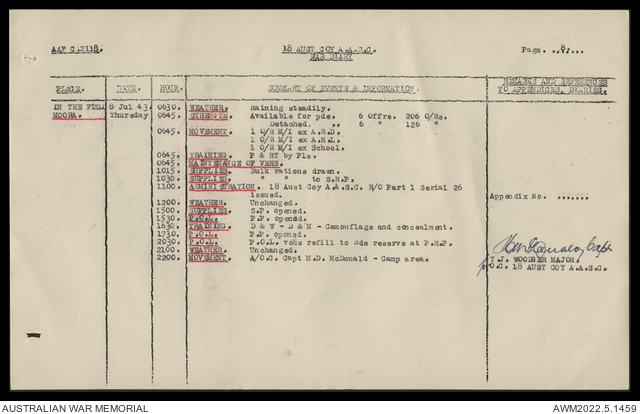 AAF C.2118.
18 AUST COY A.A.S.C.
WAR DIARY
Page. ..8....
PLACE. DATE. HOUR. SUMMARY OF EVENTS & INFORMATION. REMARKS AND REFERENCES TO APPENDICES, DIARIES.
IN THE FIELD 8 Jul 43 0630. WEATHER. Raining steadily.
MOORA. Thursday 0645. STRENGTH. Available for pde. 6 Offrs. 206 O/Rs.
Detached. ,, 6 " 126 "
0645. MOVEMENT. 1 O/R M/I ex A.R.D.
1 O/R M/I ex A.R.L.
1 O/R M/I ex School.
0645. TRAINING. P & RT by Pls.
0645. MAINTENANCE OF VEHS.
1015. SUPPLIES. Bulk rations drawn.
1030. SUPPLIES. " " to S.R.P.
1100. ADMINISTRATION. 18 Aust Coy A.A.S.C. R/O Part 1 Serial 26
issued. Appendix No .......
1200. WEATHER. Unchanged.
1500. SUPPLIES. S.P. opened.
1530. P.O.L. P.P. opened.
1630. TRAINING. D & W - D & M - Camouflage and concealment.
1730. P.O.L. P.P. opened.
2030. P.O.L. P.O.L. vehs refill to #de reserve at P.R.P.
2100. WEATHER. Unchanged.
2200. MOVEMENT. A/O.C. Capt M.D. McDonald - Camp area.
Capt
T.J. WOODGER MAJOR.
O.C. 18 AUST COY A.A.S.C.
AUSTRALIAN WAR MEMORIAL
AWM2022.5.1459